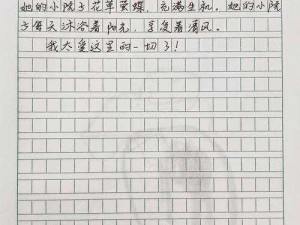 她的小院子花草荣耀，充满生机。她的小院
子每天沐浴着阳光，享受着清风。
我太爱这里的一切了！